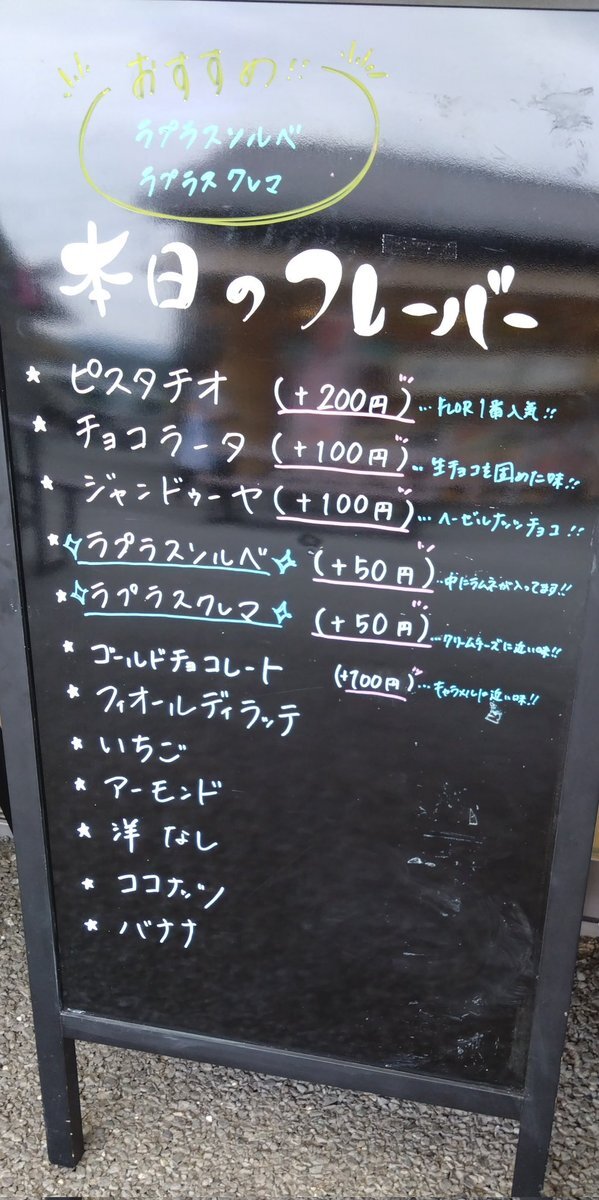 おすすめ!!
ラプラスソルベ
ラプラスクレマ
本日のフレーバー
★ ピスタチオ (+200円)…FLOR1番人気!!
★ チョコラータ (+100円)…生チョコを固めた味!!
★ ジャンドゥーヤ (+100円)…ヘーゼルナッツチョコ!!
★ ラプラスソルベ (+50円)…中にラムネが入ってます!!
★ ラプラスクレマ (+50円)…クリームチーズに近い味!!
★ ゴールドチョコレート (+100円)…キャラメルに近い味!!
★ フィオールディラッテ
★ いちご
★ アーモンド
★ 洋なし
★ ココナッツ
★ バナナ